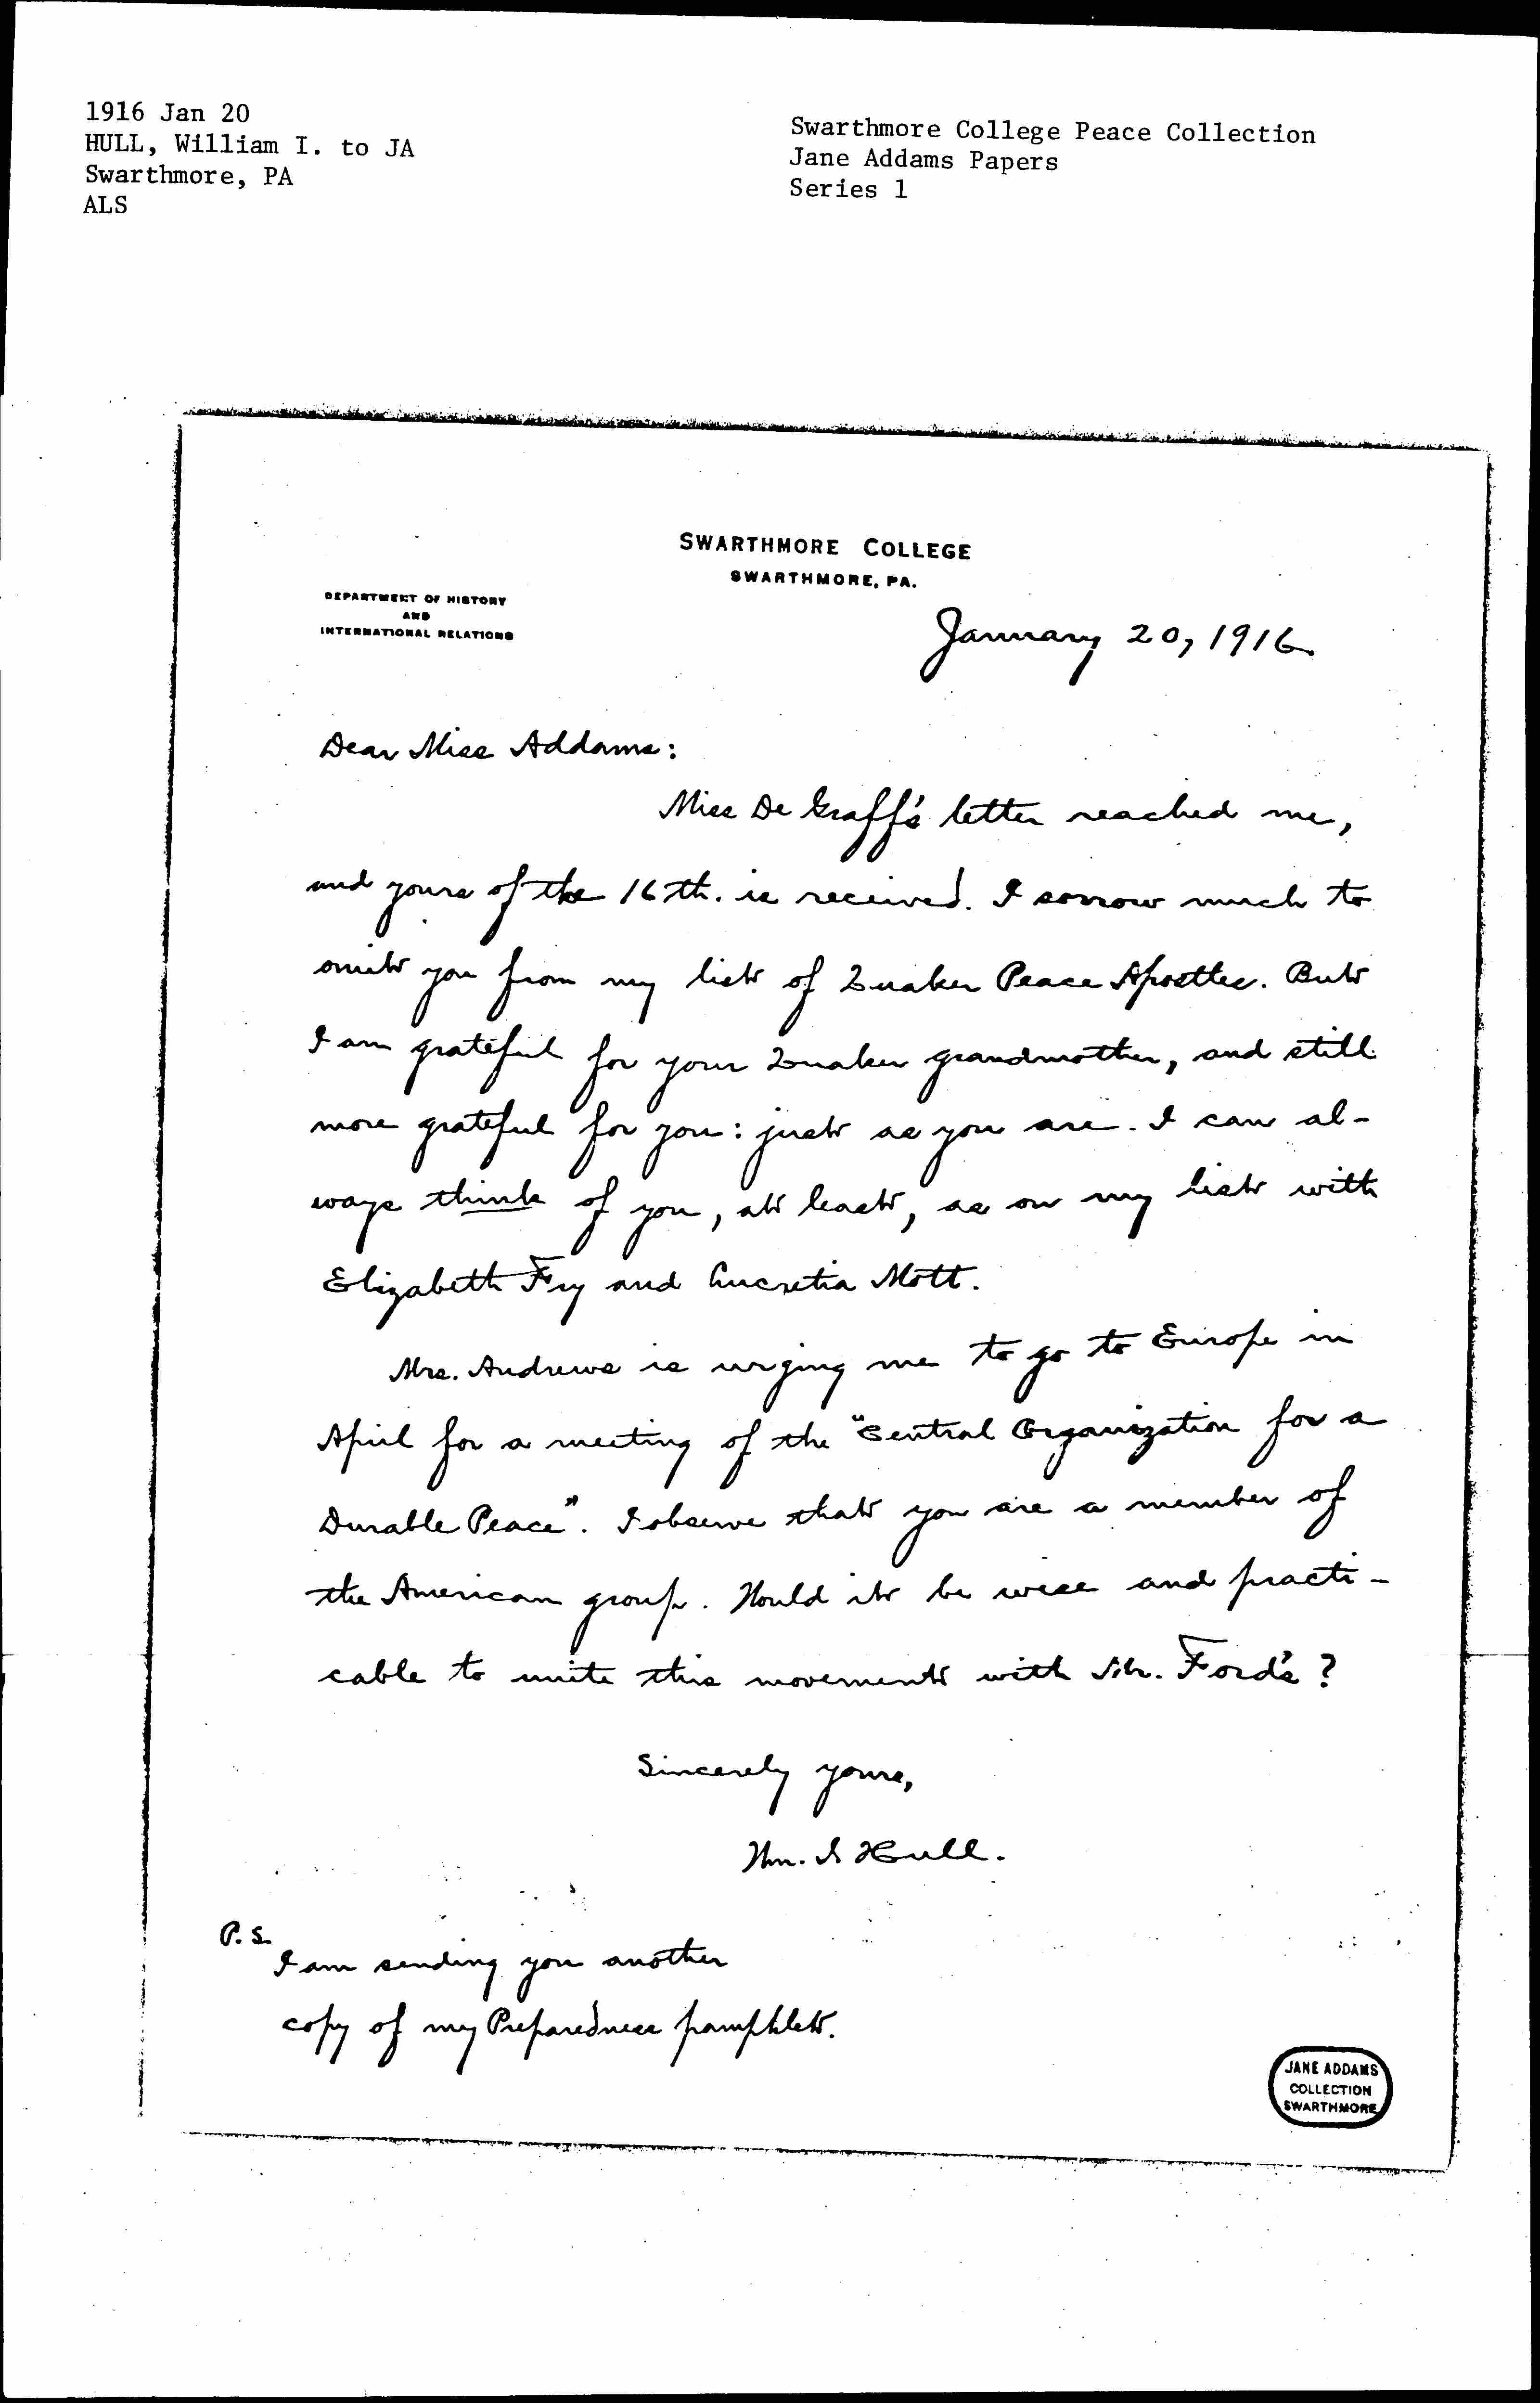 1916 Jan 20
HULL, William I. to JA
Swarthmore, PA
ALS
Swarthmore College Peace Collection
Jane Addams Papers
Series 1
SWARTHMORE COLLEGE
SWARTHMORE, PA.
DEPARTMENT OF HISTORY
AND
INTERNATIONAL RELATIONS
January 20, 1916
Dear Miss Addams:
Miss De Graff's letter reached me,
and yours of the 16th. is received. I sorrow much to
omit you from my list of Quaker Peace Apostles. But
I am grateful for your Quaker grandmother, and still
more grateful for you: just as you are. I can al-
ways think of you, at least, as on my list with
Elizabeth Fry and Lucretia Mott.
Mrs. Andrews is urging me to go to Europe in
April for a meeting of the "Central Organization for a
Durable Peace". I observe that you are a member of
the American group. Would it be wise and practi-
cable to unite this movement with Mr. Ford's?
Sincerely yours,
Wm. I Hull.
P.S.
I am sending you another
copy of my Preparedness pamphlet.
JANE ADDAMS
COLLECTION
SWARTHMORE